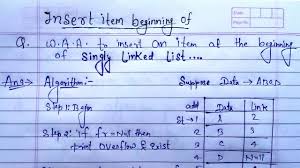 Insert item beginning of
Q. W.A.A. to insert an item at the beginning
of Singly Linked List....
Ans→ Algorithm:- Suppose Data → ABCD
Step 1: Begin
add Data Link
St→1 A 2
Step 2: If fr = Null then
2 B 3
print overflow & exist
3 C 4
4 D